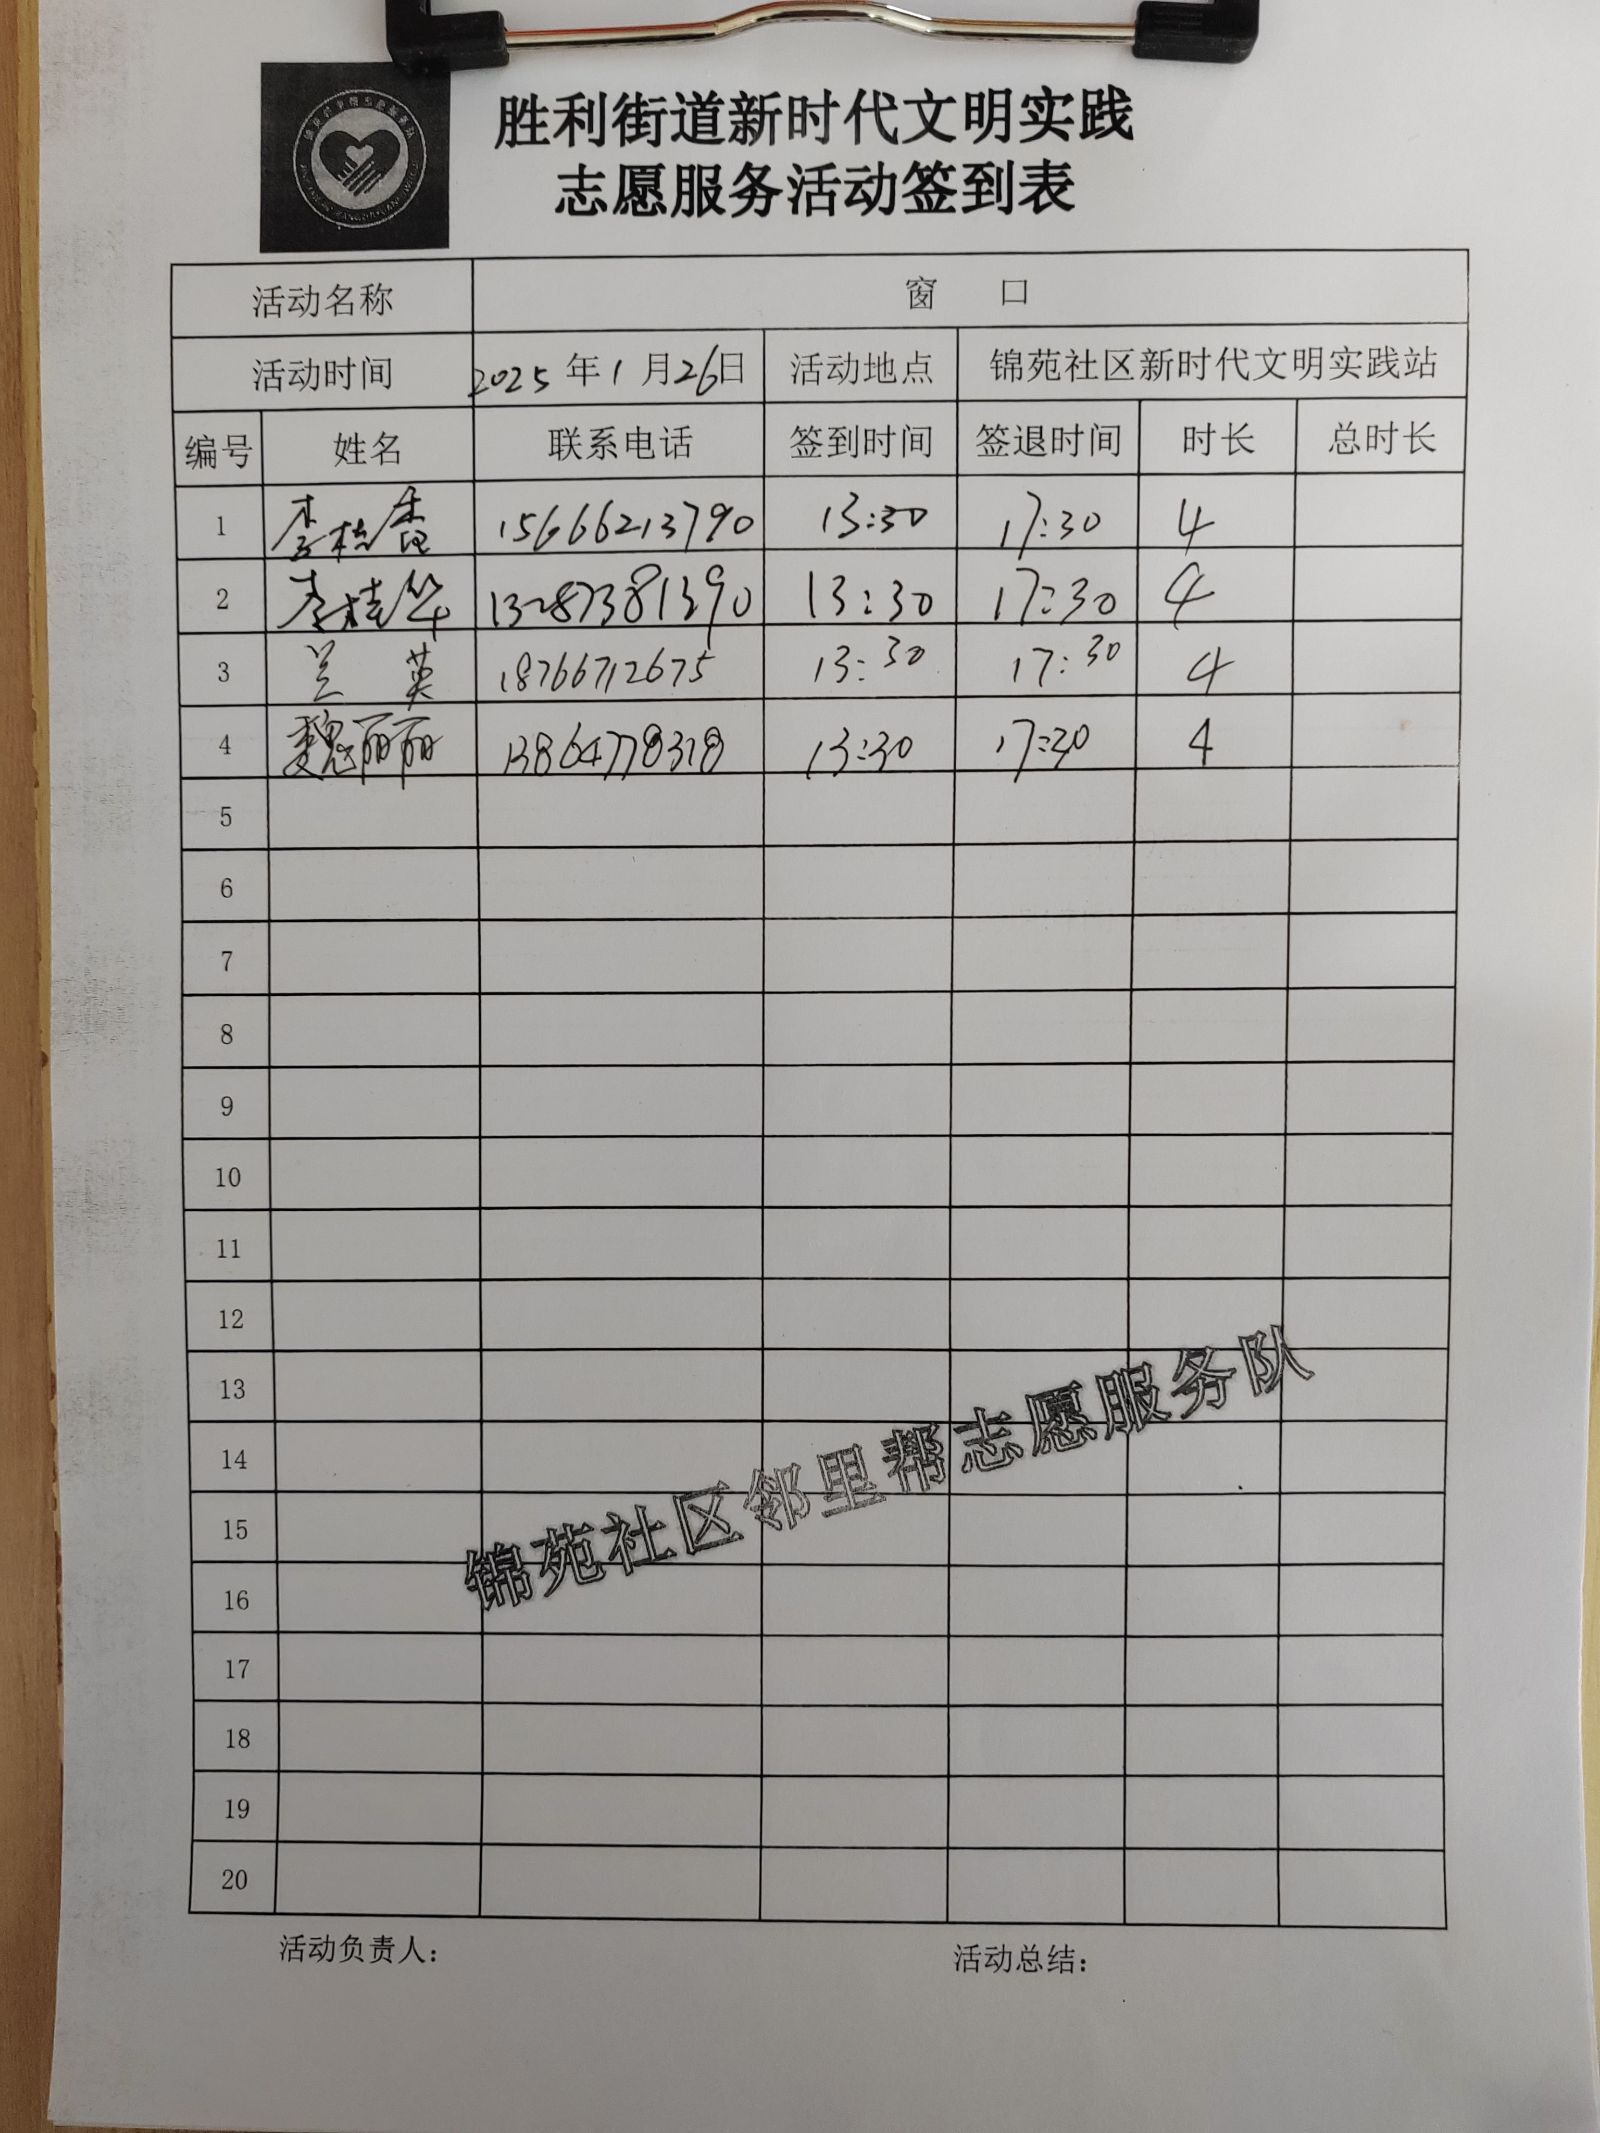 胜利街道新时代文明实践
志愿服务活动签到表
活动名称 窗 口
活动时间 2025年1月26日 活动地点 锦苑社区新时代文明实践站
编号 姓名 联系电话 签到时间 签退时间 时长 总时长
1 李桂香 15666213790 13:30 17:30 4
2 李桂华 13287381390 13:30 17:30 4
3 兰英 18766712675 13:30 17:30 4
4 魏丽丽 13864778318 13:30 17:30 4
5
6
7
8
9
10
11
12
13
14
15
16
17
18
19
20
锦苑社区邻里帮志愿服务队
活动负责人： 活动总结：